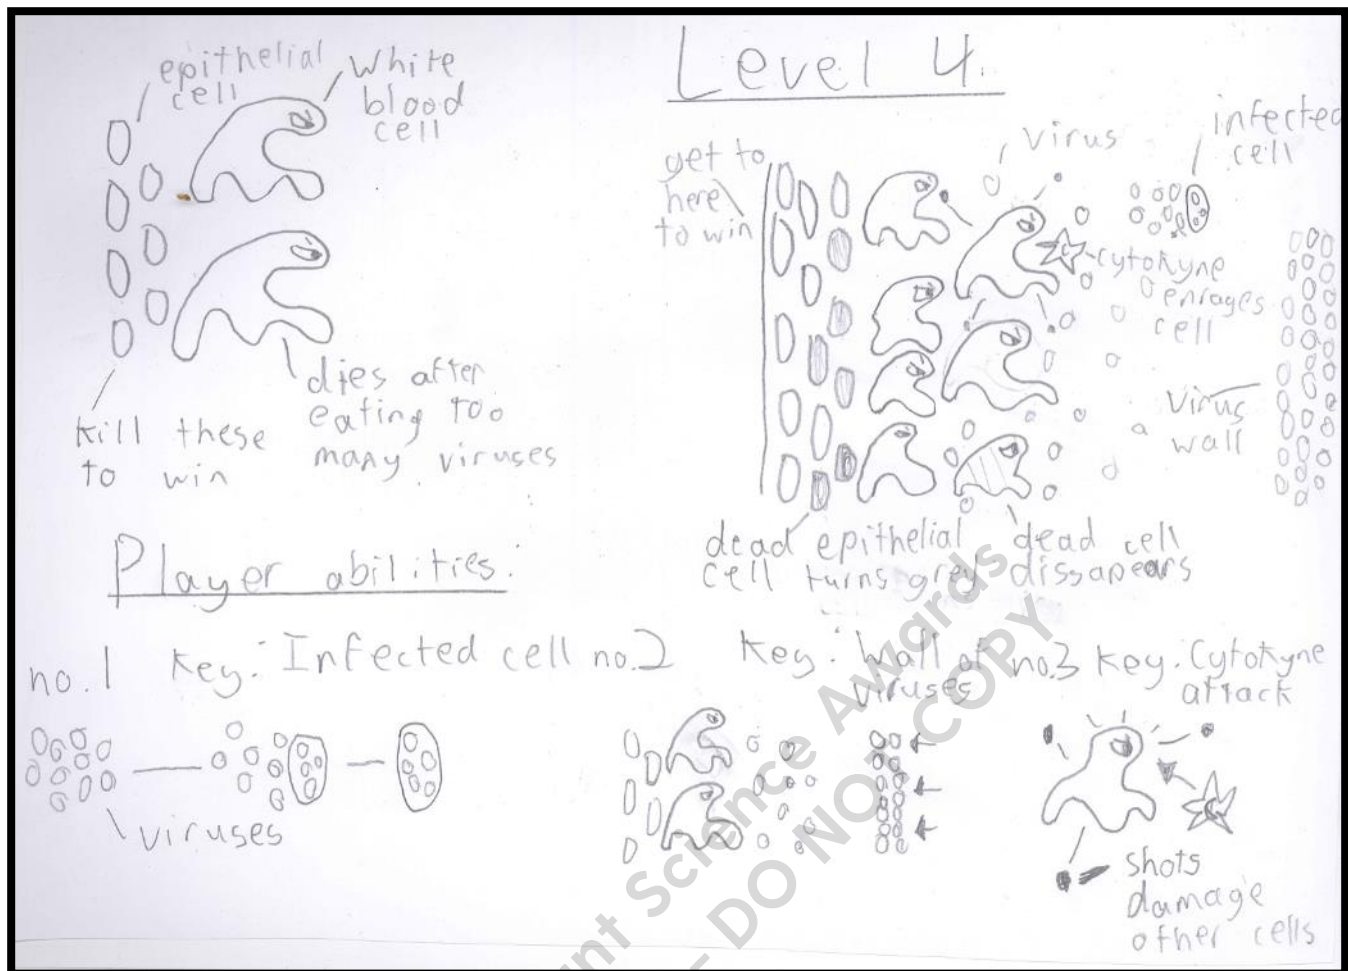 epithelial
cell
White
blood
cell
dies after
eating too
many viruses
Kill these
to win
Level 4.
get to
here
to win
virus
infected
cell
cytokyne
enrages
cell
virus
wall
dead epithelial
cell turns grey
dead cell
dissapears
Player abilities:
no.1 Key: Infected cell
viruses
no.2 Key: Wall of
viruses
no.3 Key: Cytokyne
attack
shots
damage
other cells
nt Science Awards
– DO NOT COPY